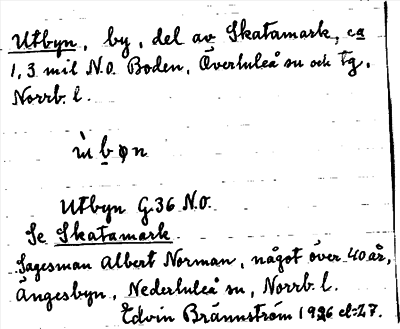 Utbyn, by, del av Skatamark, ca
1,3 mil N.O. Boden, Överluleå sn och tg,
Norrb. l.
Utbyn G.36 N.O.
Se Skatamark
Sagesman Albert Norman, något över 40 år,
Ängesbyn, Nederluleå sn, Norrb. l.
Edvin Brännström 1926 el. 27.